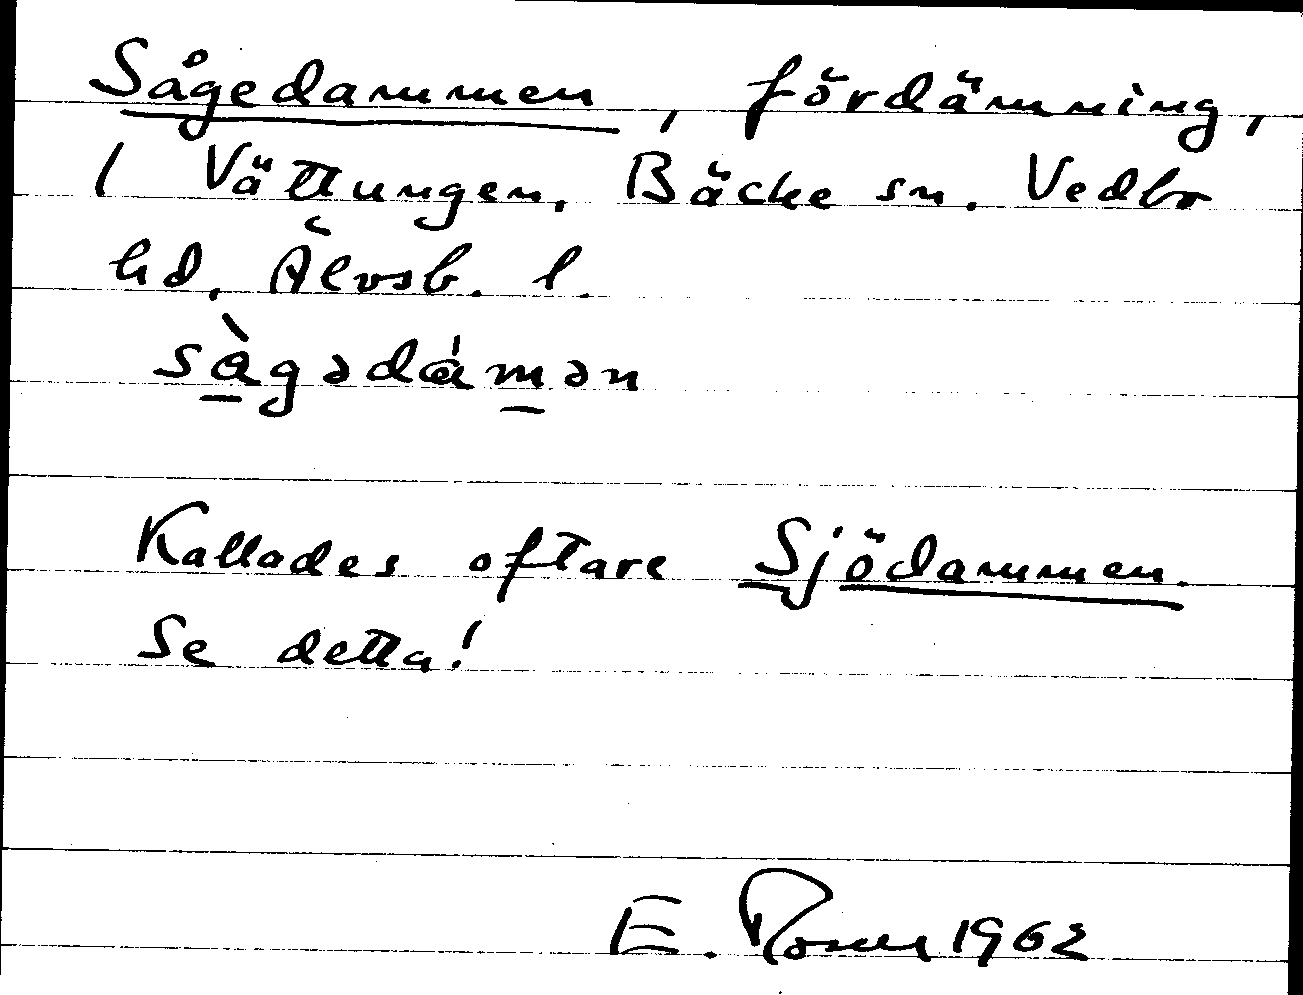 Sågedammen, fördämning,
I Vättungen. Bäcke sn. Vedbo
hd. Älvsb. l.
sàgədámən
Kallades oftare Sjödammen.
Se detta!
E. 1962